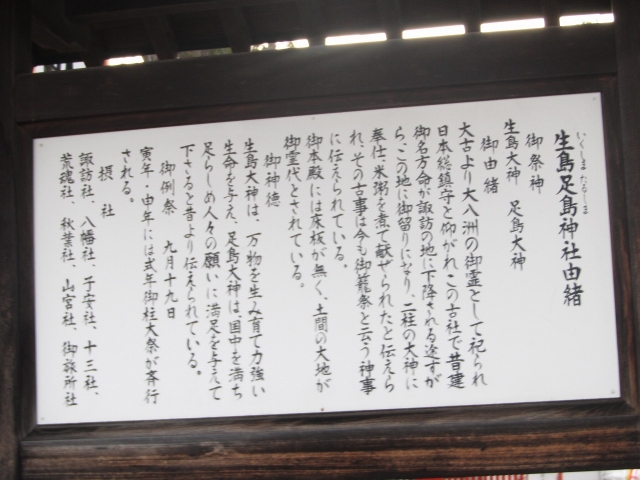 いくしまたるしま
生島足島神社由緒
御祭神
生島大神　足島大神
御由緒
太古より大八洲の御霊として祀られ
日本総鎮守と仰がれ、この古社で昔建
御名方命が諏訪の地に下降される途すが
ら、この地に御留りになり、二柱の大神に
奉仕、米粥を煮て献ぜられたと伝えら
れ、その古事は今も御籠祭と云う神事
に伝えられている。
御本殿には床板が無く、土間の大地が
御霊代とされている。
御神徳
生島大神は、万物を生み育て力強い
生命を与え、足島大神は、国中を満ち
足らしめ人々の願いに満足を与えて
下さると昔より伝えられている。
御例祭　九月十九日
寅年・申年には式年御柱大祭が斉行
される。
摂社
諏訪社、八幡社、子安社、十三社、
荒魂社、秋葉社、山宮社、御旅所社